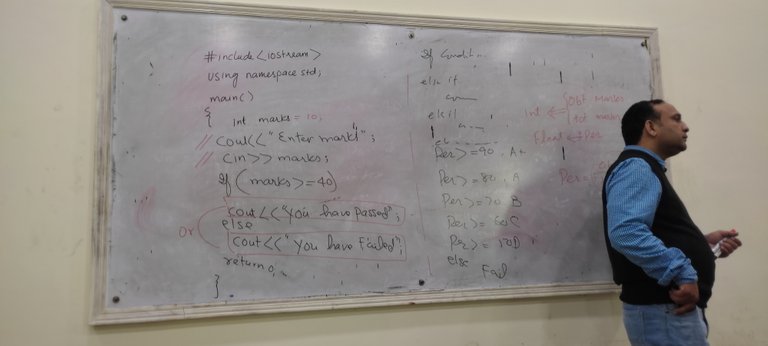 #include<iostream>
using namespace std;
main()
{ int marks = 10;
// cout<<"Enter marks";
// cin>> marks;
if (marks>=40)
cout<<"You have passed";
else
or
cout<<"You have Failed";
return 0;
}
If Condition
else if
else if
Per>=90 A+
Per>=80 A
Per>=70 B
Per>=60 C
Per>=50 D
else
Fail
int Obt marks
tot marks
Float Per
Per=